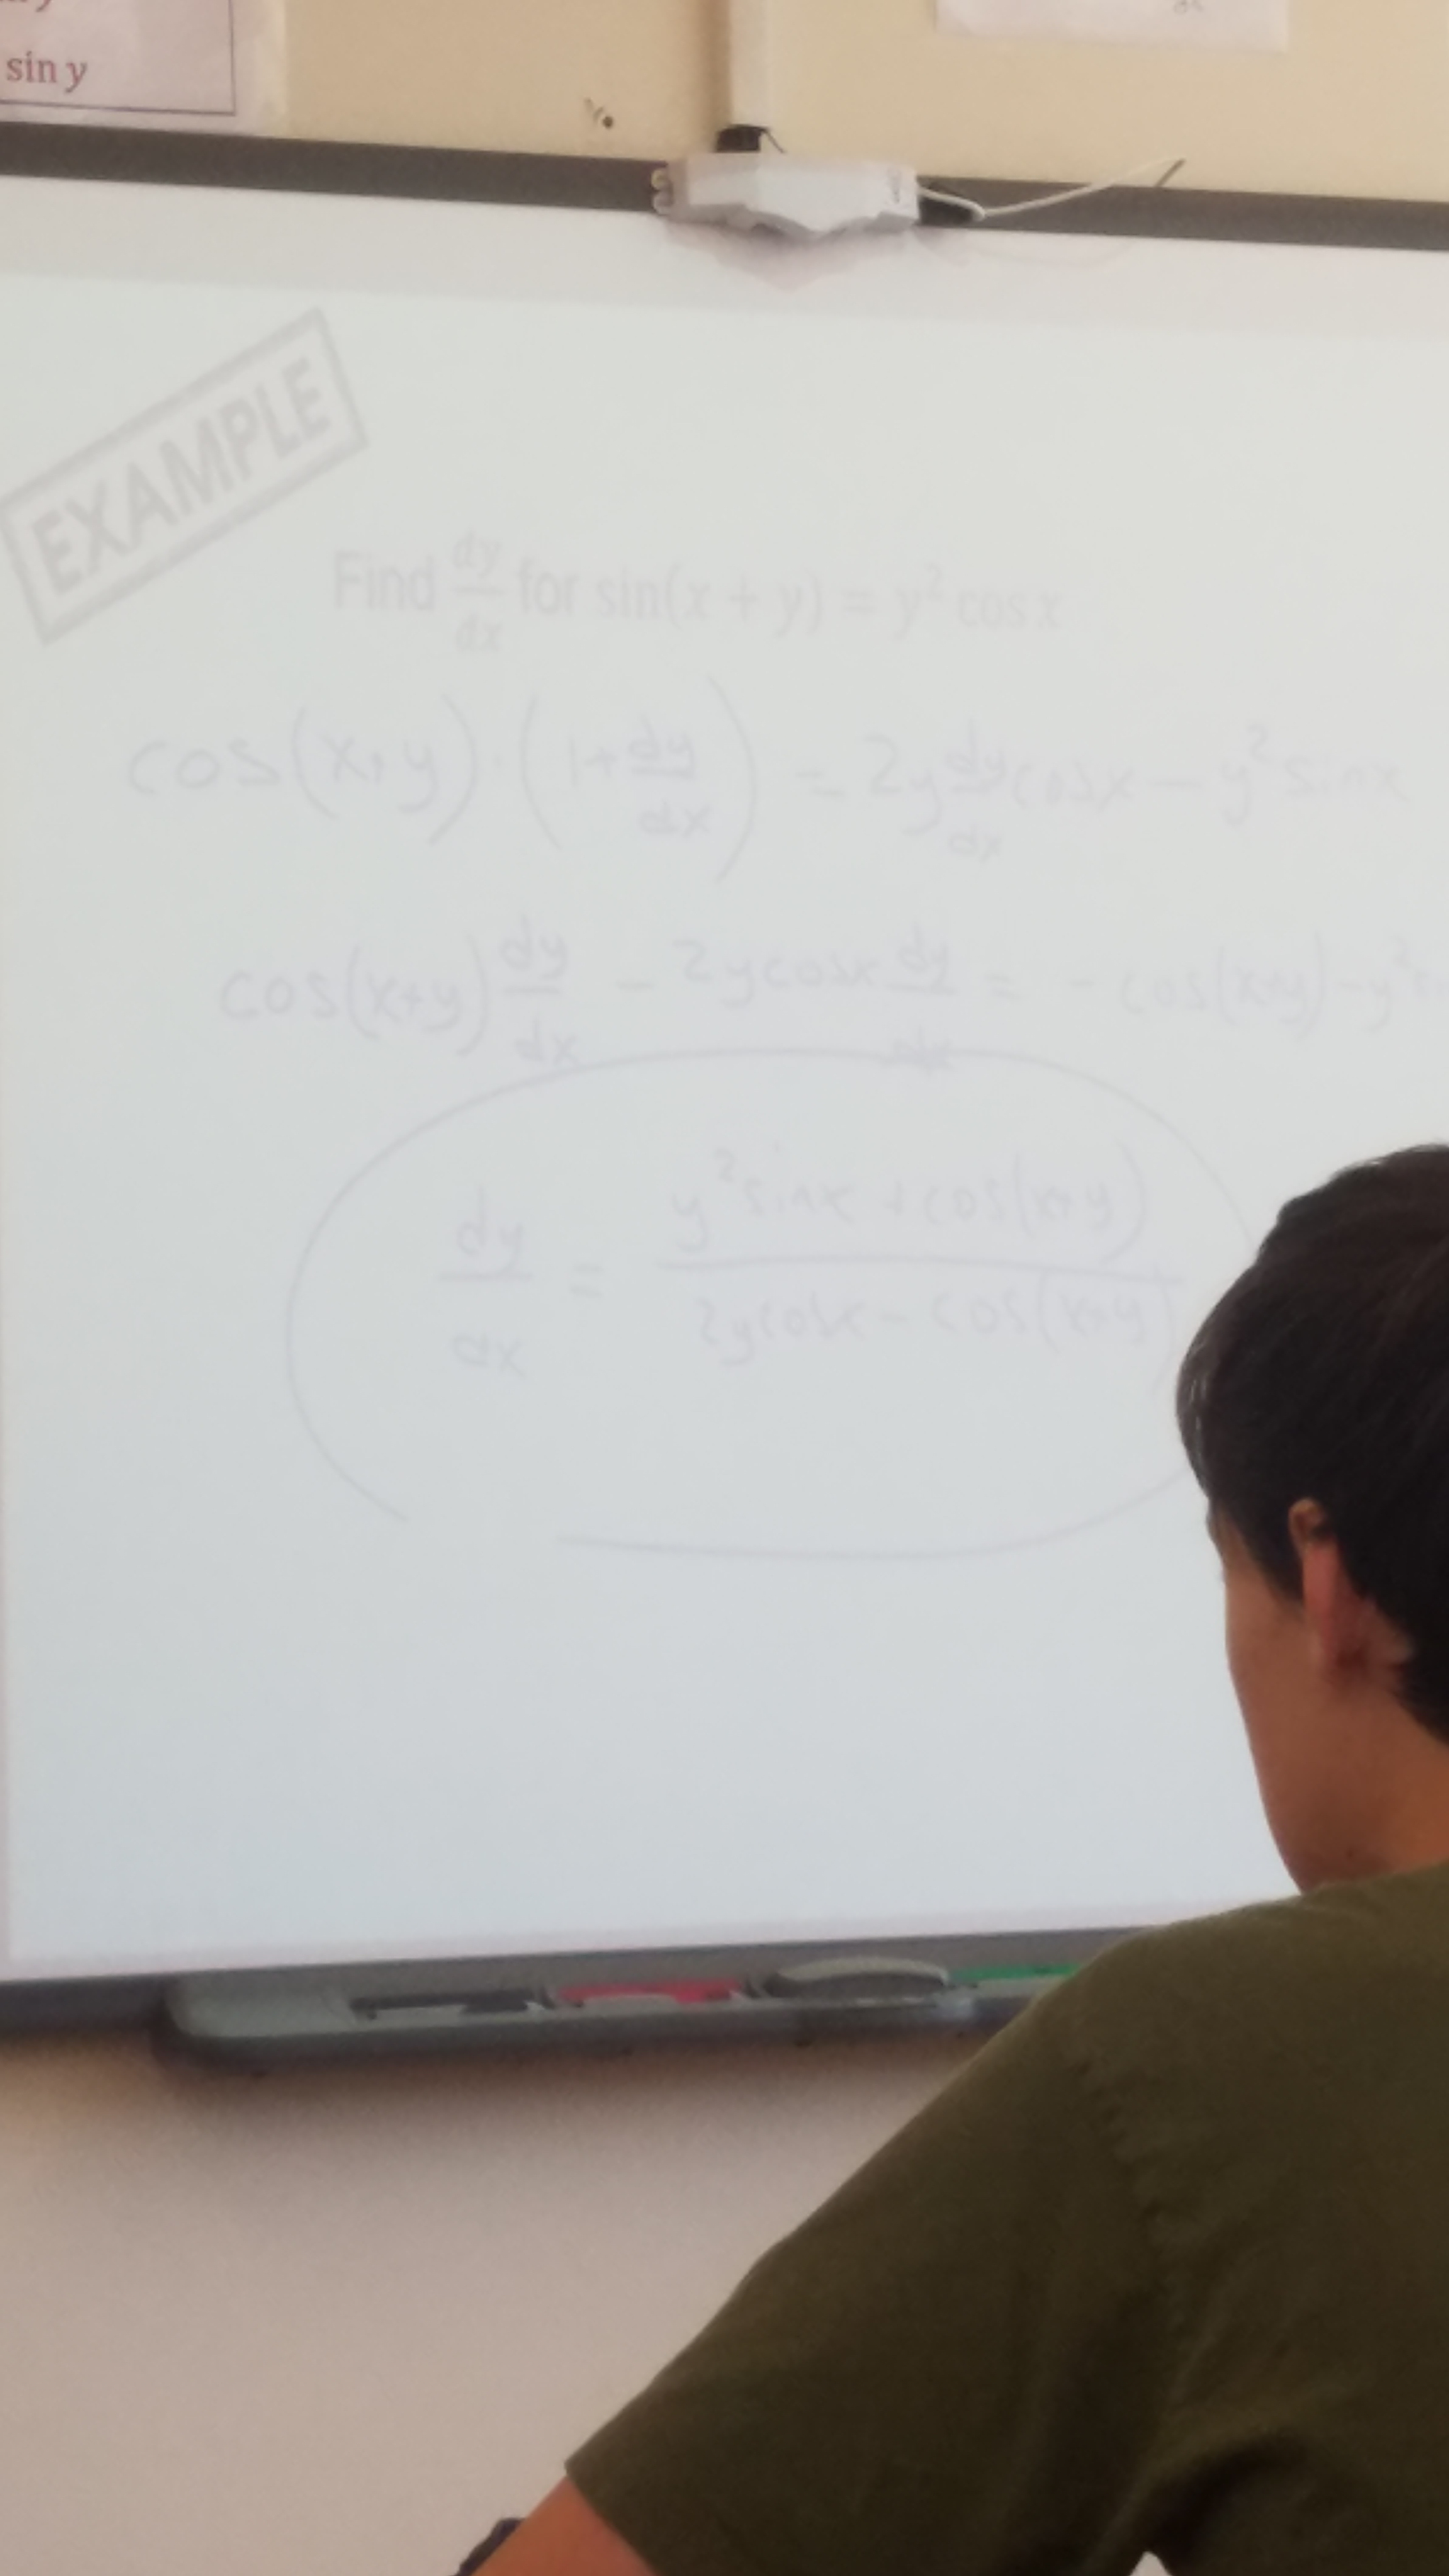 sin y
EXAMPLE
Find dy/dx for sin(x + y) = y² cos x
cos(x+y)·(1+dy/dx) = 2y dy/dx cosx - y² sinx
cos(x+y) dy/dx - 2y cosx dy/dx = - cos(x+y) - y²
dy/dx = y² sinx + cos(x+y) / 2y cosx - cos(x+y)